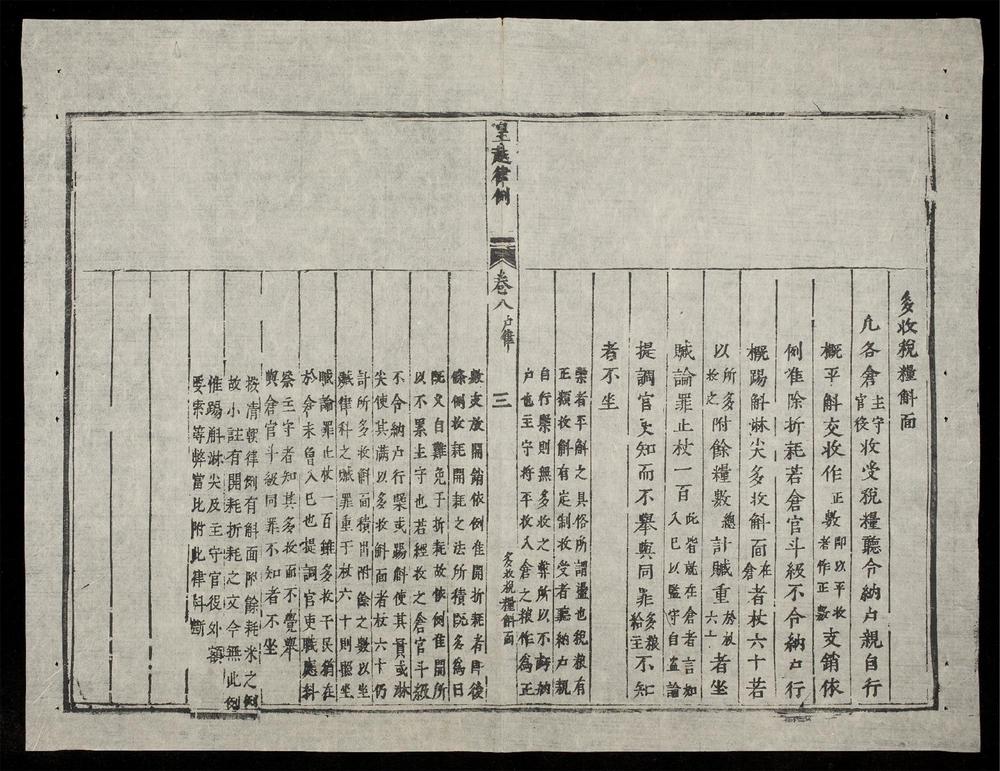 多收稅糧斛面
凡各倉主守官役收受稅糧聽令納户親自行
概平斛交收作正數即以平收者作正數支銷依
例准除折耗若倉官斗級不令納户行
概踢斛淋尖多收斛面在倉者杖六十若
以所多收之附餘糧數總計贓重於杖六十者坐
贓論罪止杖一百此皆就在倉者言如入己以監守自盗論
提調官吏知而不舉與同罪多糧給主不知
者不坐
槩者平斛之具俗所謂盪也稅糧有
正額收斛有定制收受者聽納户親
自行槩則無多收之弊所以不病納
户也主守將平收入倉之糧作為正
多收稅糧斛面
皇越律例
卷八 户律
三
數支放開銷依例准開折耗者即後
條倒收耗開耗之法所積既多為日
既久自難免于折耗故依例准開所
以不累主守也若經收之倉官斗級
不令納户行槩或踢斛使其實或淋
尖使其滿以多收斛面者杖六十仍
計所多收斛面積出附餘之數以坐
贓律科之贓罪重于杖六十則照坐
贓論罪止杖一百雖多收于民猶在
於倉未曾入己也提調官吏職應科
察主守者知其多收而不覺舉
與倉官斗級同罪不知者不坐
按清朝律例有斛面附餘耗米之例
故小註有開耗折耗之文今無此例
惟踢斛淋尖及主守官役外額
要索等弊當比附此律科斷